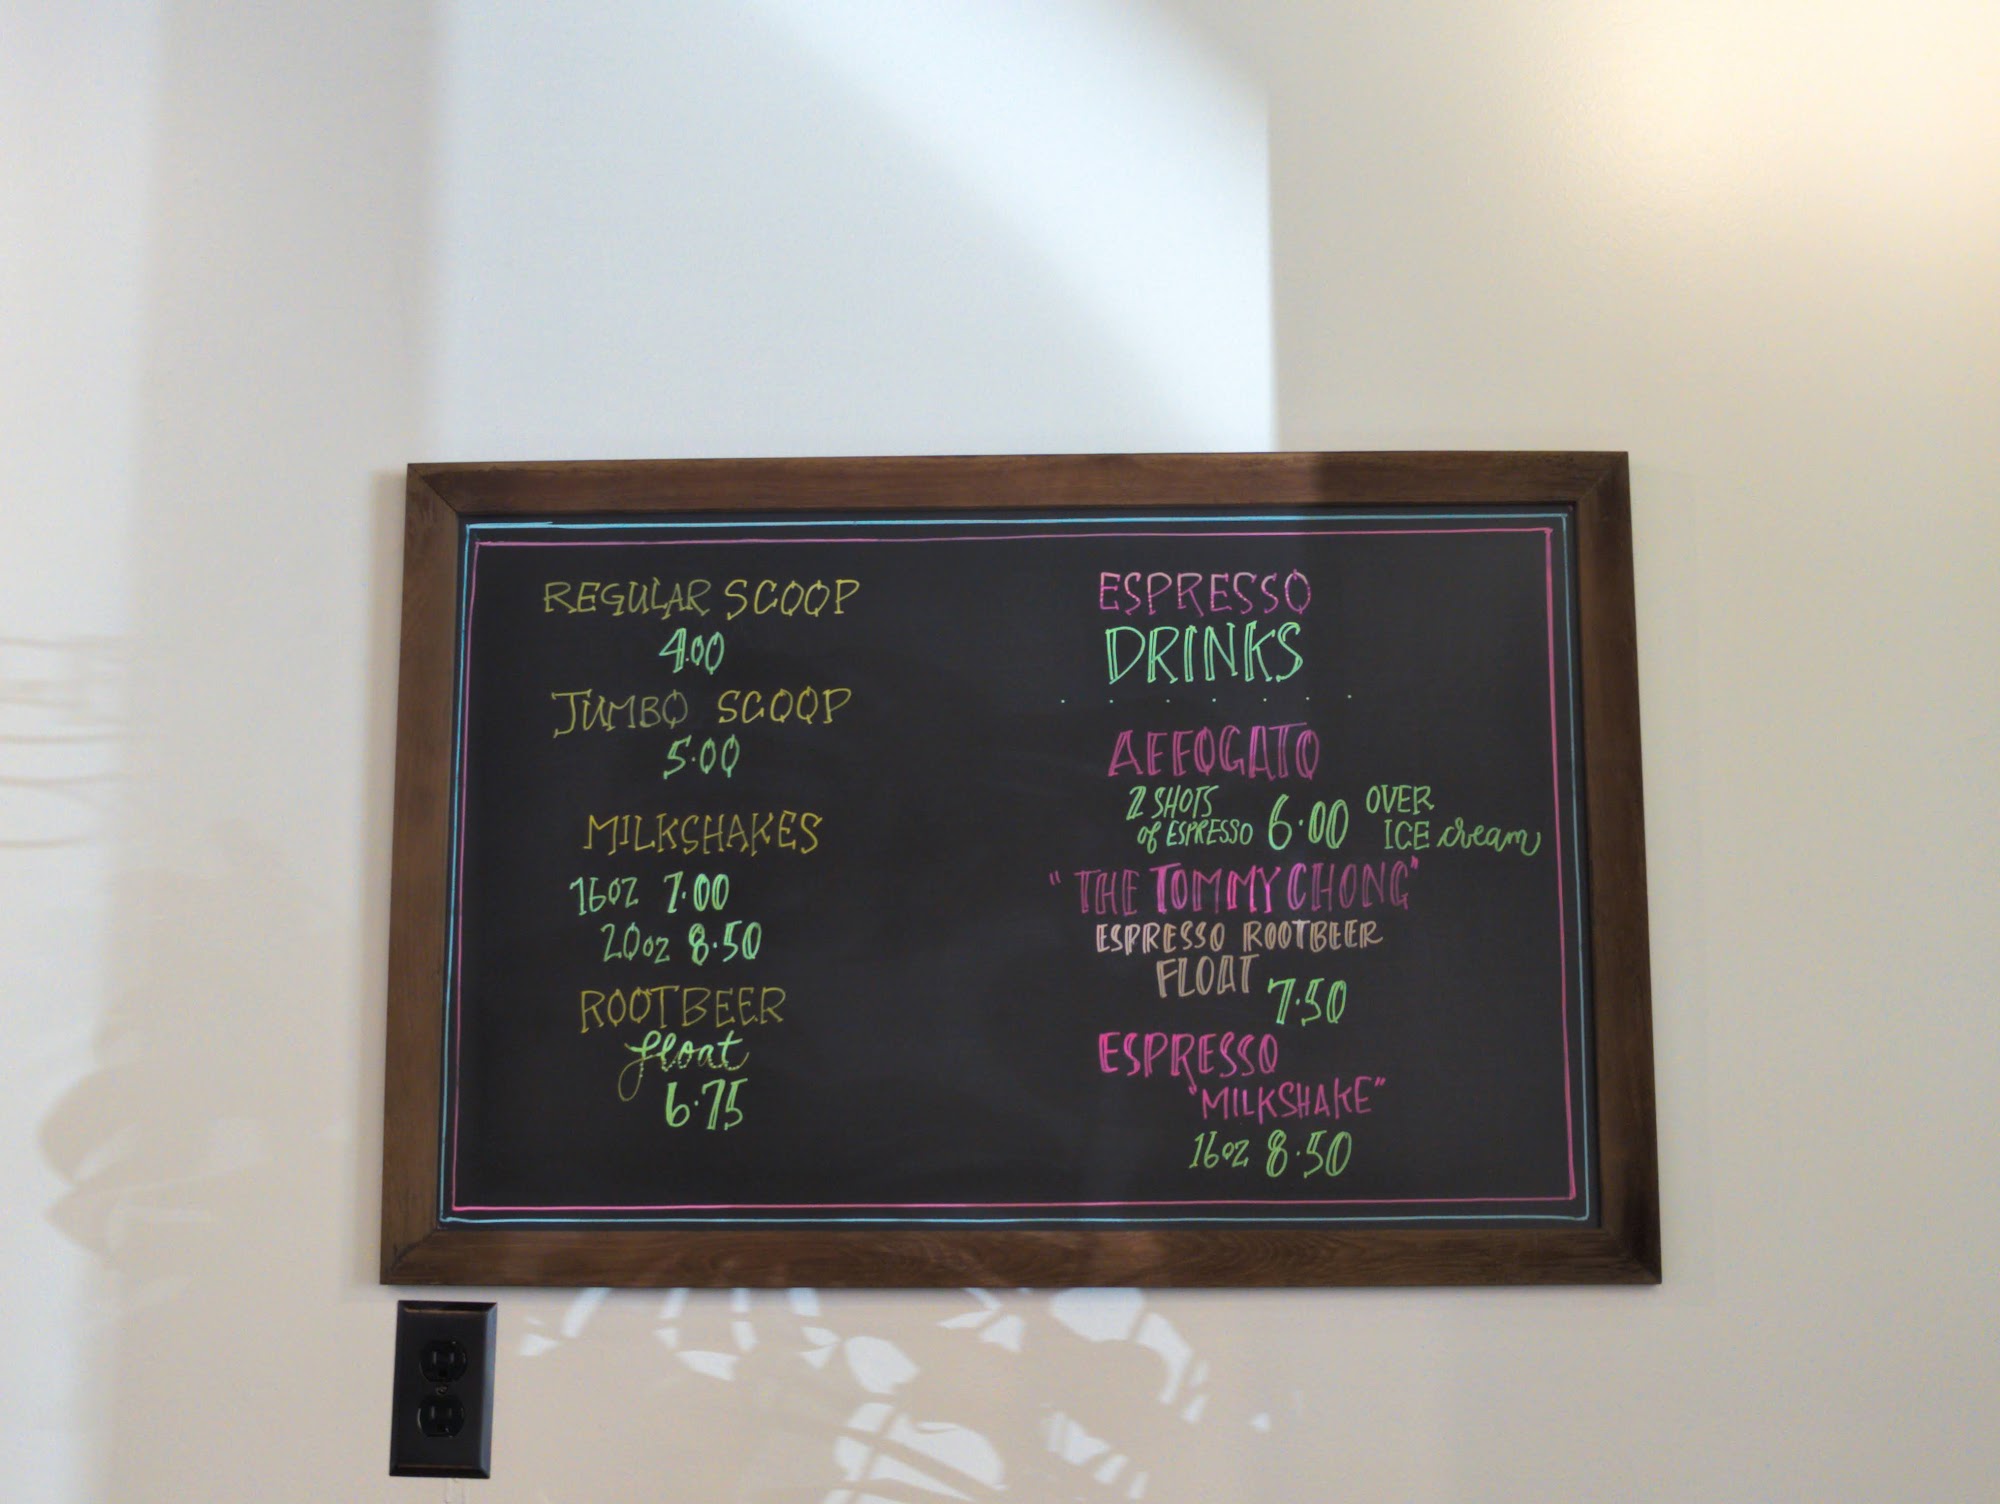 REGULAR SCOOP
4.00
JUMBO SCOOP
5.00
MILKSHAKES
16oz 7.00
20oz 8.50
ROOTBEER
float
6.75
ESPRESSO
DRINKS
AFFOGATO
2 SHOTS
of ESPRESSO 6.00 OVER
ICE cream
"THE TOMMY CHONG"
ESPRESSO ROOTBEER
FLOAT 7.50
ESPRESSO
"MILKSHAKE"
16oz 8.50